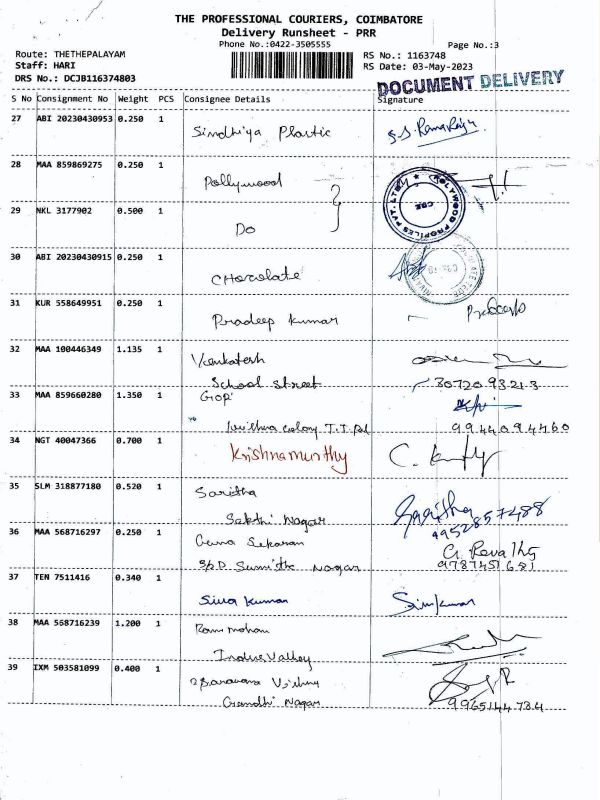 THE PROFESSIONAL COURIERS, COIMBATORE
Delivery Runsheet - PRR
Phone No.:0422-3505555
Page No.:3
Route: THETHEPALAYAM
RS No.: 1163748
Staff: HARI
RS Date: 03-May-2023
DRS No.: DCJB116374803
DOCUMENT DELIVERY
S No Consignment No Weight PCS Consignee Details Signature
27 ABI 20230430953 0.250 1 Sindhiya Plastic
28 MAA 859869275 0.250 1 Pollywood
29 NKL 3177902 0.500 1 Do
30 ABI 20230430915 0.250 1 Chocolate
31 KUR 558649951 0.250 1 Pradeep Kumar
32 MAA 100446349 1.135 1 Venkatesh
School street
33 MAA 859660280 1.350 1 Gopi
colony T.T. Pal 9944094460
34 NGT 40047366 0.700 1 Krishnamurthy
35 SLM 318877180 0.520 1 Saritha Saritha
Sakthi Nagar 9952857488
36 MAA 568716297 0.250 1 Guna Sekaran G. Revathy
Nagar 9787451681
37 TEN 7511416 0.340 1 Siva Kumar
38 MAA 568716239 1.200 1 Ram mohan
Indus Valley
39 IXM 503581099 0.400 1
Gandhi Nagar 9965144734